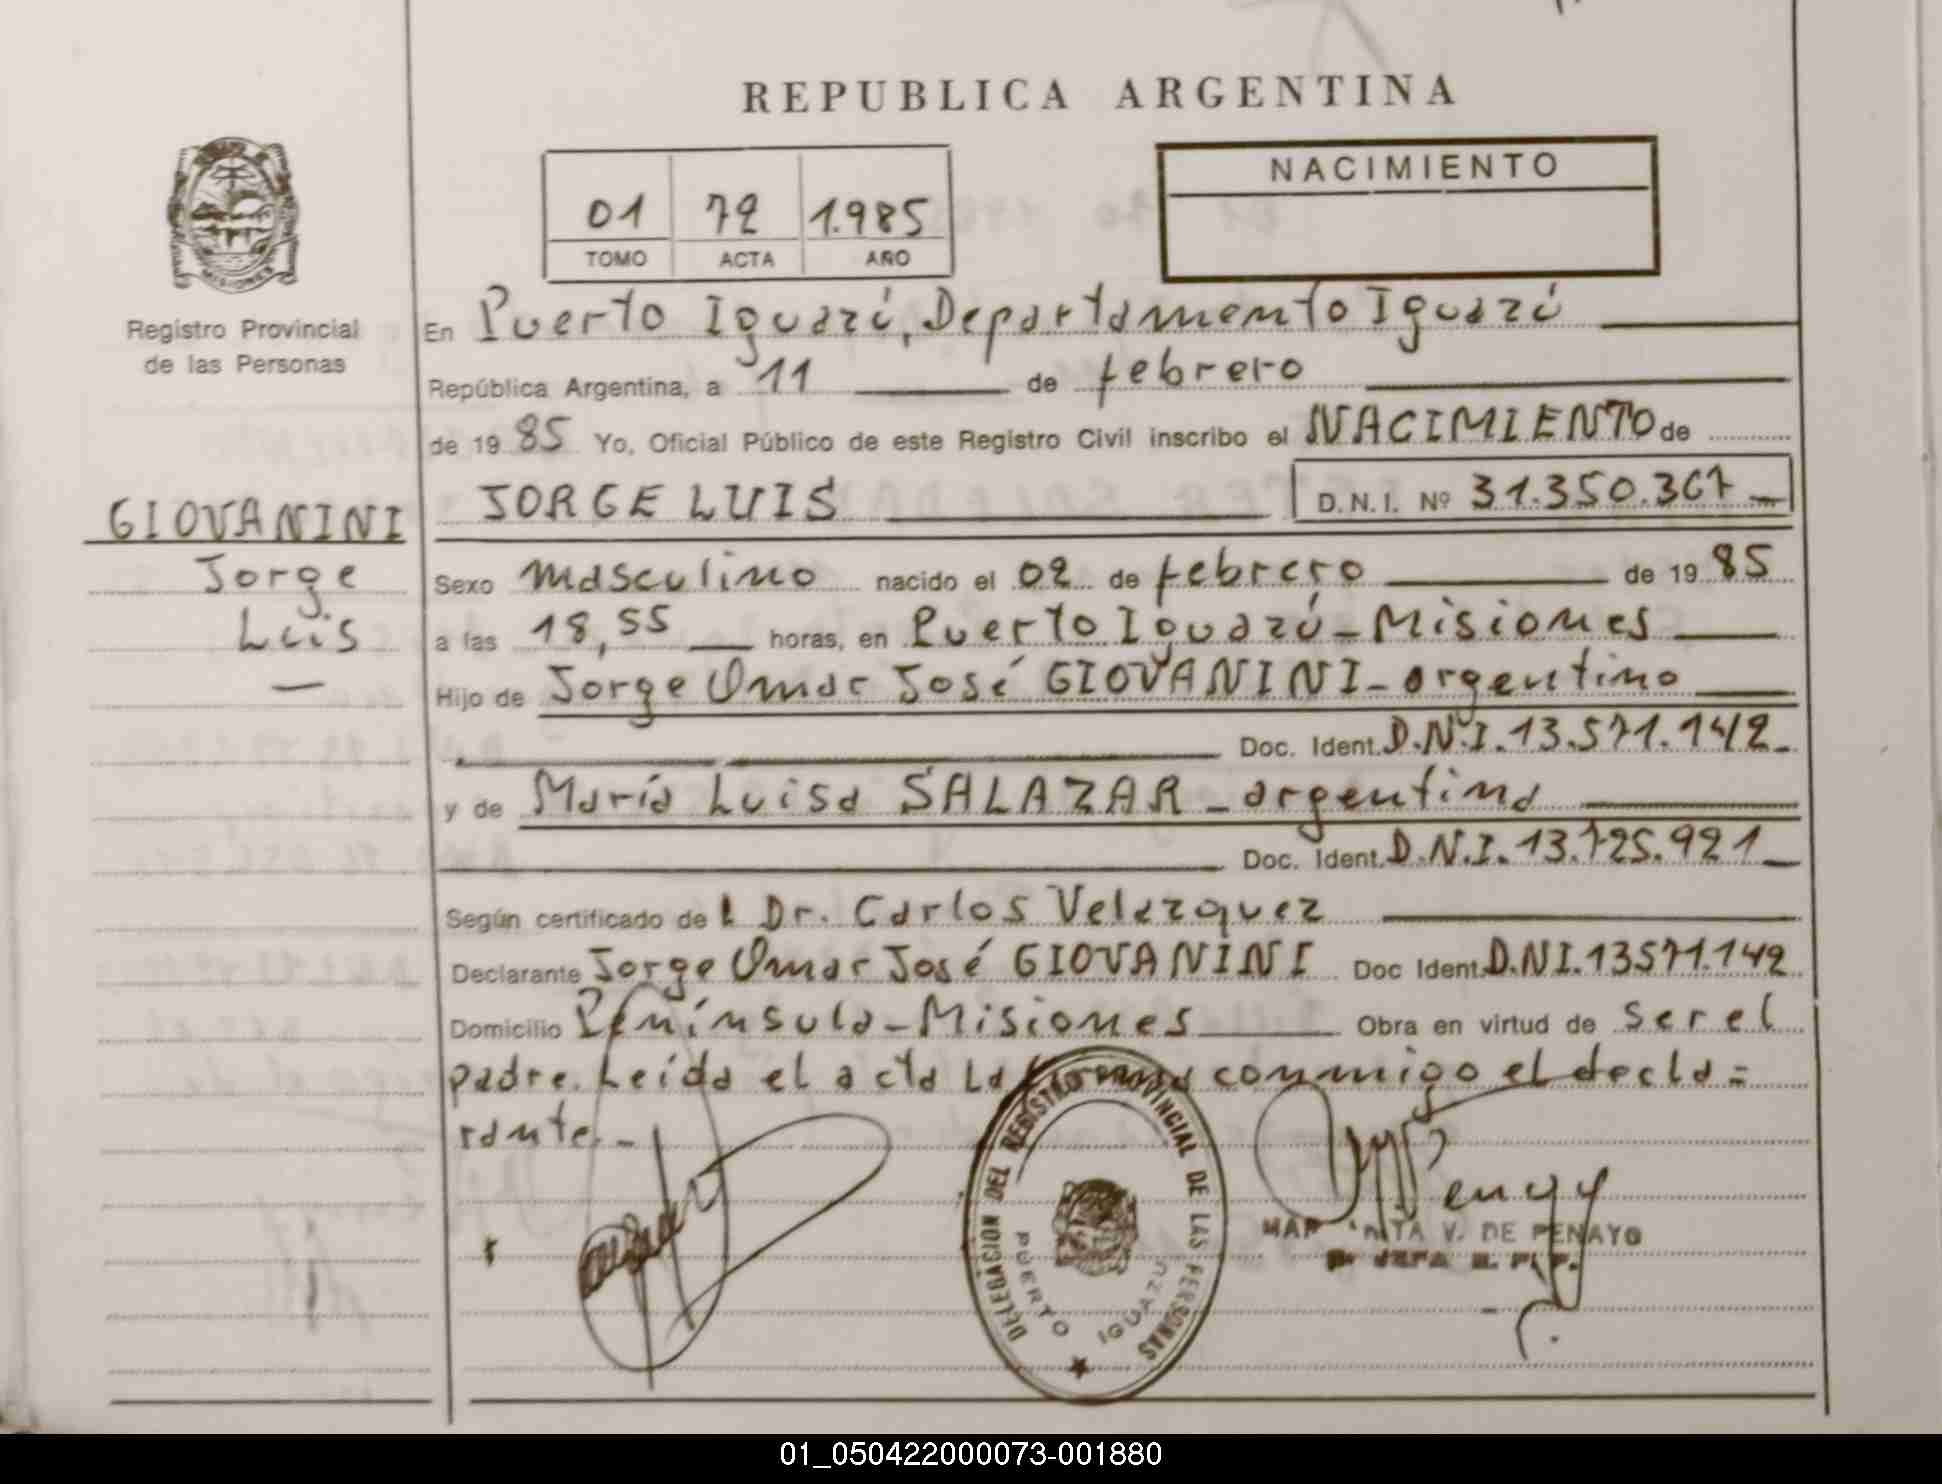 REPUBLICA ARGENTINA
01 72 1.985
TOMO ACTA AÑO
NACIMIENTO
MISIONES
Registro Provincial
de las Personas
En Puerto Iguazú, Departamento Iguazú
República Argentina, a 11 de febrero
de 1985 Yo, Oficial Público de este Registro Civil inscribo el NACIMIENTO de
JORGE LUIS D.N.I. Nº 31.350.367
GIOVANINI
Jorge
Luis
Sexo masculino nacido el 02 de febrero de 1985
a las 18,55 horas, en Puerto Iguazú - Misiones
Hijo de Jorge Omar José GIOVANINI - argentino
Doc. Ident. D.N.I. 13.571.142
y de María Luisa SALAZAR - argentina
Doc. Ident. D.N.I. 13.725.921
Según certificado del Dr. Carlos Velazquez
Declarante Jorge Omar José GIOVANINI Doc Ident. D.N.I. 13571.142
Domicilio Península - Misiones Obra en virtud de ser el
padre. Leída el acta la firma conmigo el decla=
rante. -
DELEGACION DEL REGISTRO PROVINCIAL DE LAS PERSONAS
PUERTO IGUAZU
V. DE PENAYO
JEFA
01_050422000073-001880